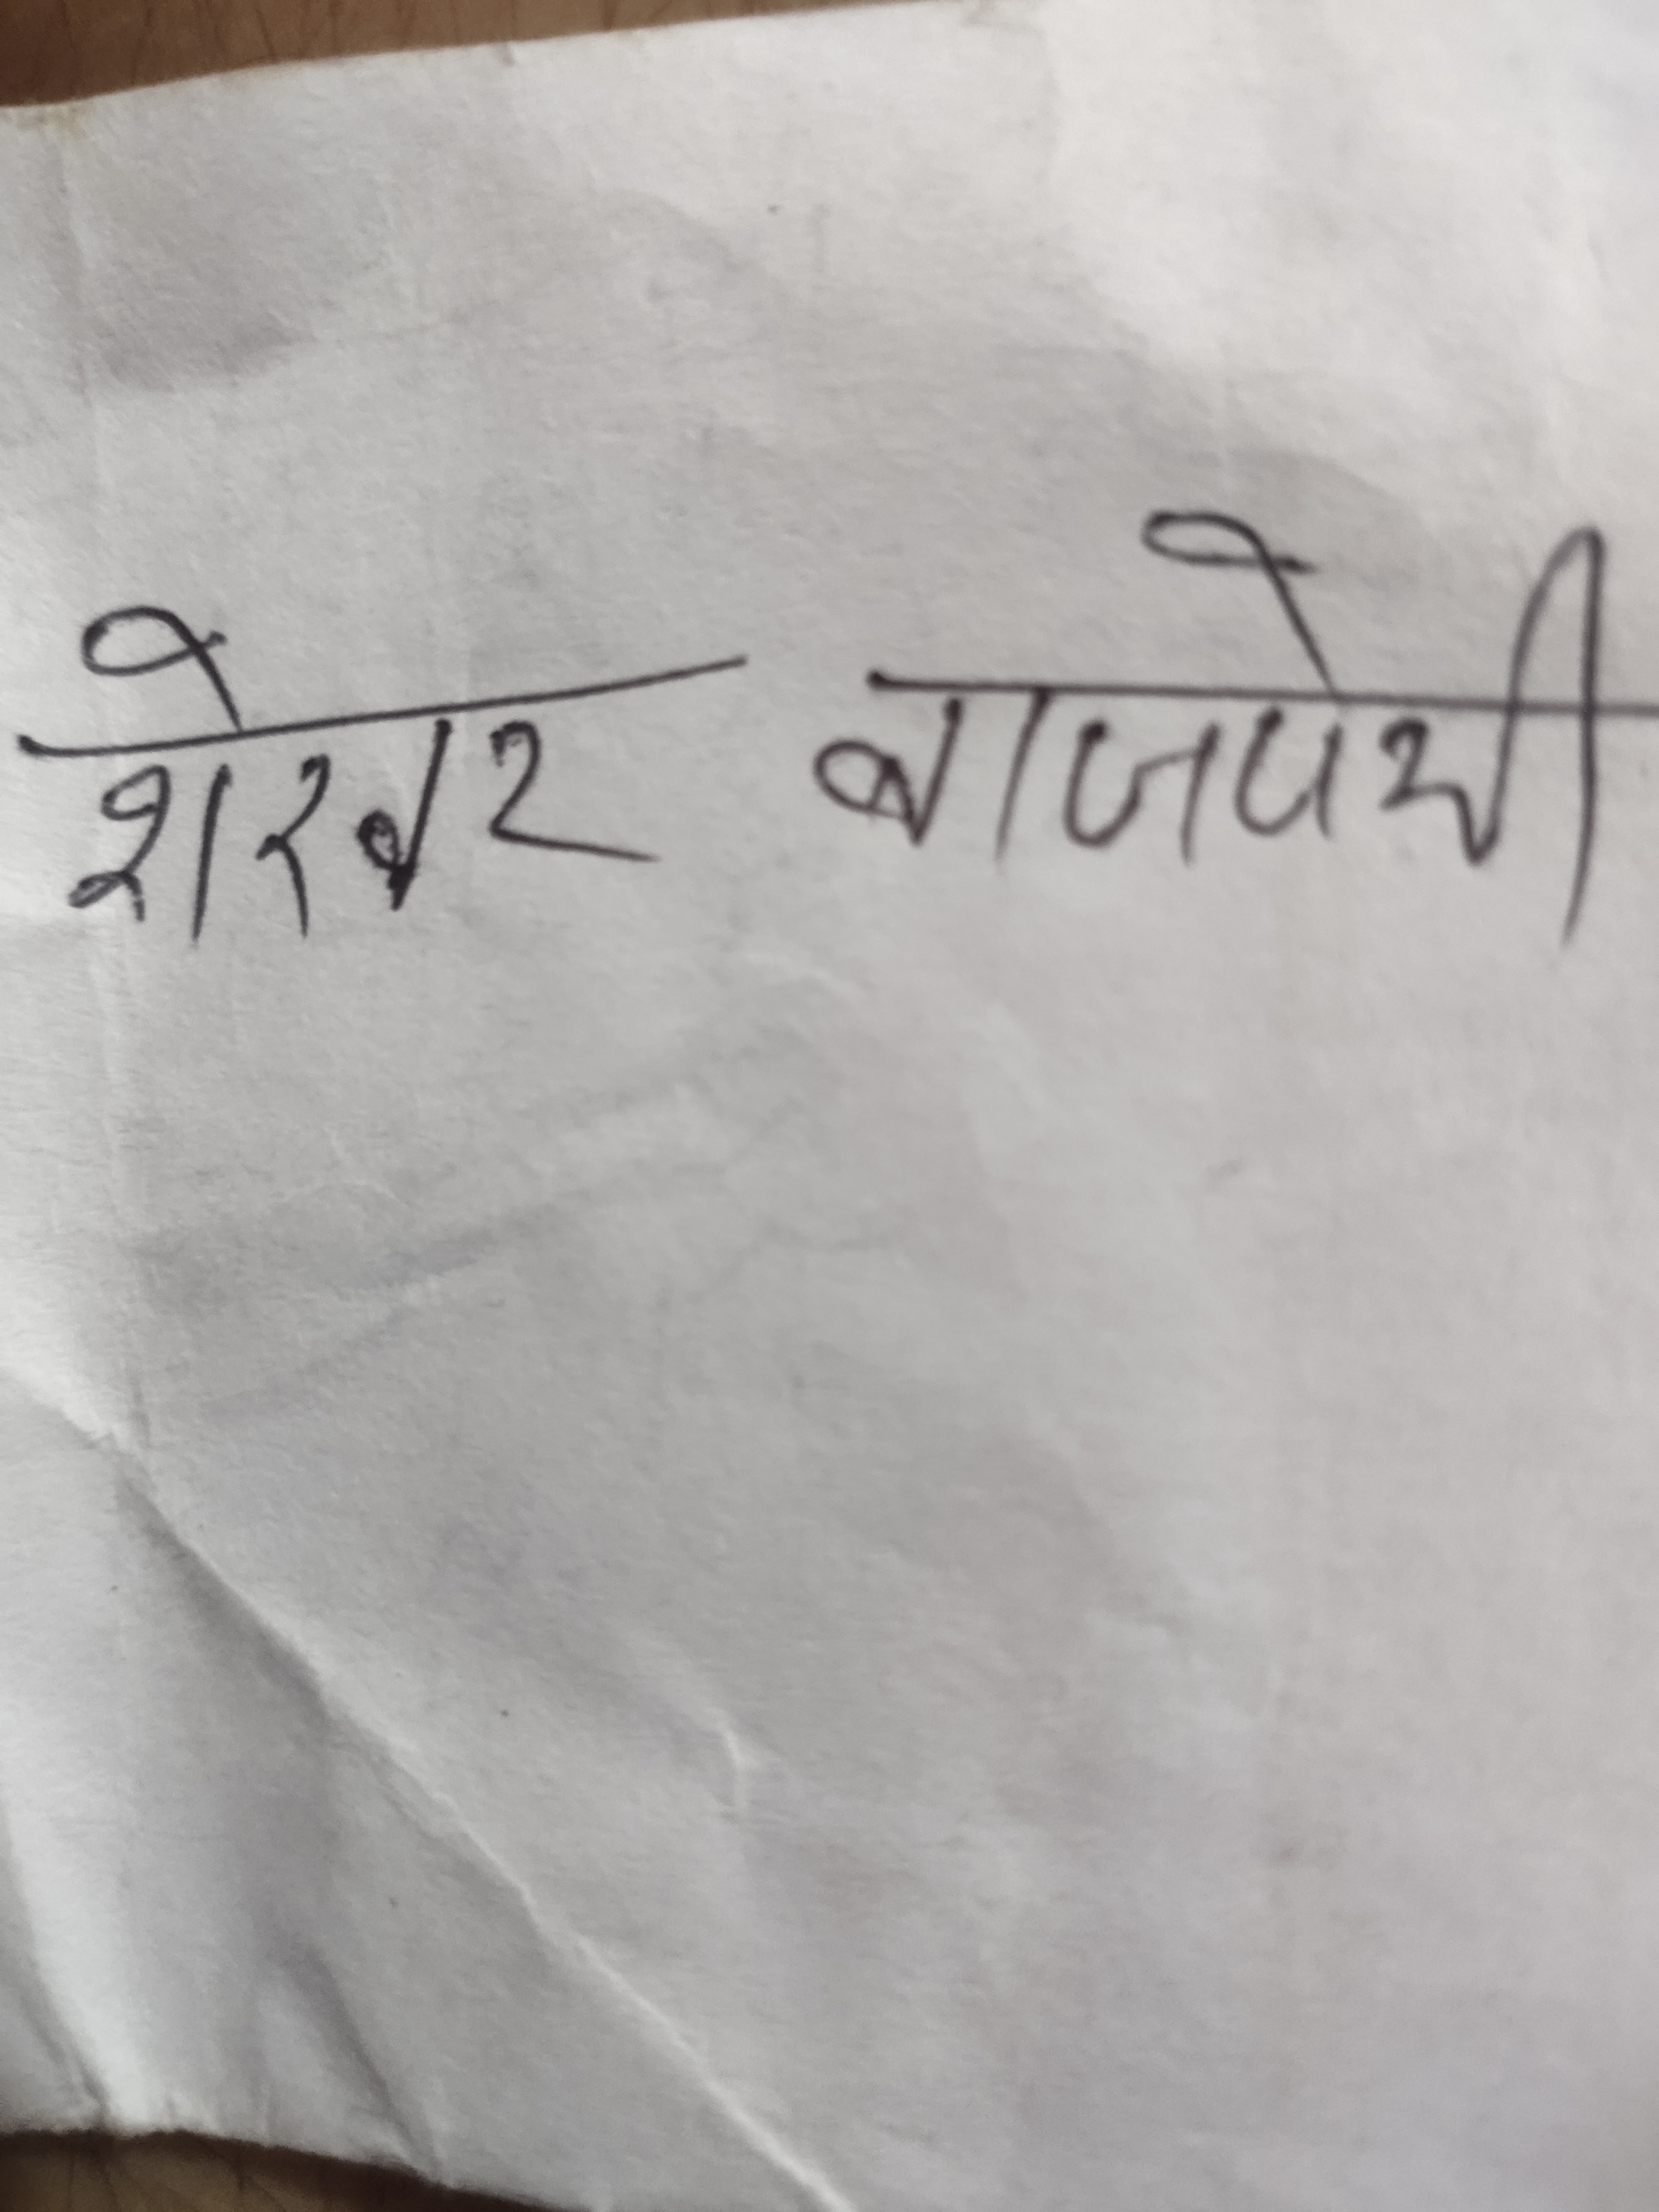 शेखर बाजपेयी